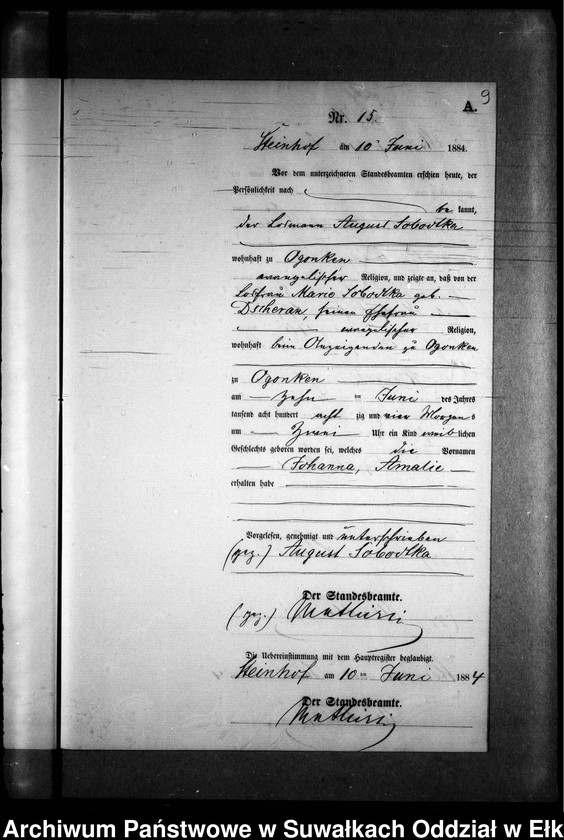 9
A.
Nr. 15.
Steinhof am 10ⁿ Juni 1884.
Vor dem unterzeichneten Standesbeamten erschien heute, der
Persönlichkeit nach
be kannt,
der Losmann August Sobodtka
wohnhaft zu Ogonken
evangelischer Religion, und zeigte an, daß von der
Losfrau Marie Sobodtka geb.
Dscheran, seiner Ehefrau
evangelischer Religion,
wohnhaft beim Anzeigenden zu Ogonken
zu Ogonken
am zehn ten Juni des Jahres
tausend acht hundert acht zig und vier Morgens
um Zwei Uhr ein Kind weib lichen
Geschlechts geboren worden sei, welches die Vornamen
Johanna, Amalie
erhalten habe
Vorgelesen, genehmigt und unterschrieben
(gez.) August Sobodtka
Der Standesbeamte.
(gez.)
Die Uebereinstimmung mit dem Hauptregister beglaubigt.
Steinhof am 10ten Juni 1884
Der Standesbeamte.
Archiwum Państwowe w Suwałkach Oddział w Ełk